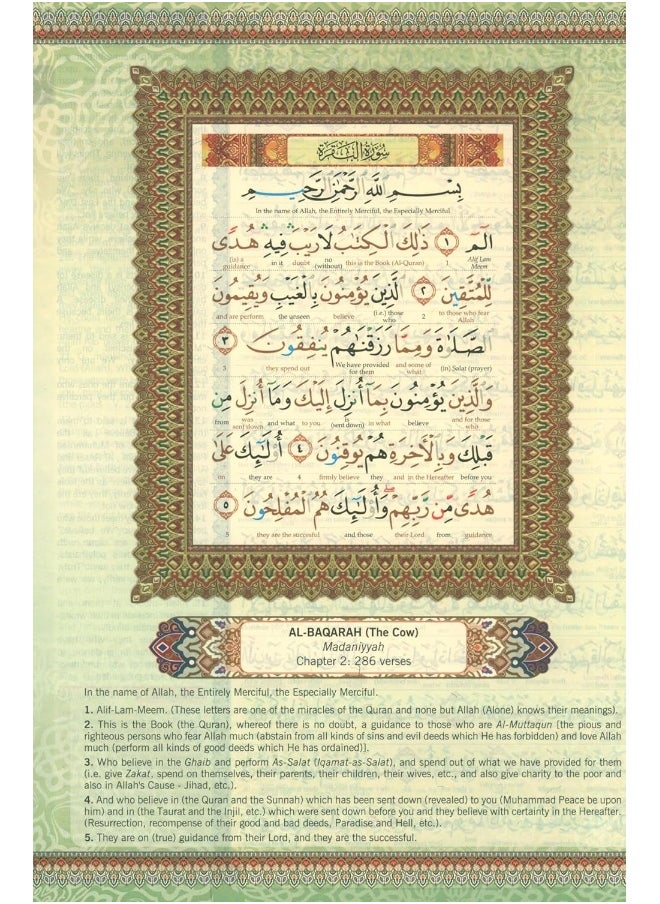 سُورَةُ الْبَقَرَةِ
بِسْمِ اللَّهِ الرَّحْمَٰنِ الرَّحِيمِ
In the name of Allah, the Entirely Merciful, the Especially Merciful
الٓمٓ ١ ذَٰلِكَ الْكِتَٰبُ لَا رَيْبَ ۛ فِيهِ ۛ هُدًى
Alif Lam Meem 1 this is the Book (Al-Quran) no (without) doubt in it (is) a guidance
لِّلْمُتَّقِينَ ٢ الَّذِينَ يُؤْمِنُونَ بِالْغَيْبِ وَيُقِيمُونَ
to those who fear Allah 2 (i.e.) those who believe the unseen and are perform
الصَّلَوٰةَ وَمِمَّا رَزَقْنَٰهُمْ يُنفِقُونَ ٣
(in) Salat (prayer) and some of what We have provided for them they spend out 3
وَالَّذِينَ يُؤْمِنُونَ بِمَآ أُنزِلَ إِلَيْكَ وَمَآ أُنزِلَ مِن
and for those who believe in what is (sent down) to you and what was sent down from
قَبْلِكَ وَبِالْءَاخِرَةِ هُمْ يُوقِنُونَ ٤ أُو۟لَٰٓئِكَ عَلَىٰ
before you and in the Hereafter they firmly believe 4 they are on
هُدًى مِّن رَّبِّهِمْ ۖ وَأُو۟لَٰٓئِكَ هُمُ الْمُفْلِحُونَ ٥
guidance from their Lord and those they are the succesful 5
AL-BAQARAH (The Cow)
Madaniyyah
Chapter 2: 286 verses
In the name of Allah, the Entirely Merciful, the Especially Merciful.
1. Alif-Lam-Meem. (These letters are one of the miracles of the Quran and none but Allah (Alone) knows their meanings).
2. This is the Book (the Quran), whereof there is no doubt, a guidance to those who are Al-Muttaqun [the pious and
righteous persons who fear Allah much (abstain from all kinds of sins and evil deeds which He has forbidden) and love Allah
much (perform all kinds of good deeds which He has ordained)].
3. Who believe in the Ghaib and perform As-Salat (Iqamat-as-Salat), and spend out of what we have provided for them
(i.e. give Zakat, spend on themselves, their parents, their children, their wives, etc., and also give charity to the poor and
also in Allah's Cause - Jihad, etc.).
4. And who believe in (the Quran and the Sunnah) which has been sent down (revealed) to you (Muhammad Peace be upon
him) and in (the Taurat and the Injil, etc.) which were sent down before you and they believe with certainty in the Hereafter.
(Resurrection, recompense of their good and bad deeds, Paradise and Hell, etc.).
5. They are on (true) guidance from their Lord, and they are the successful.